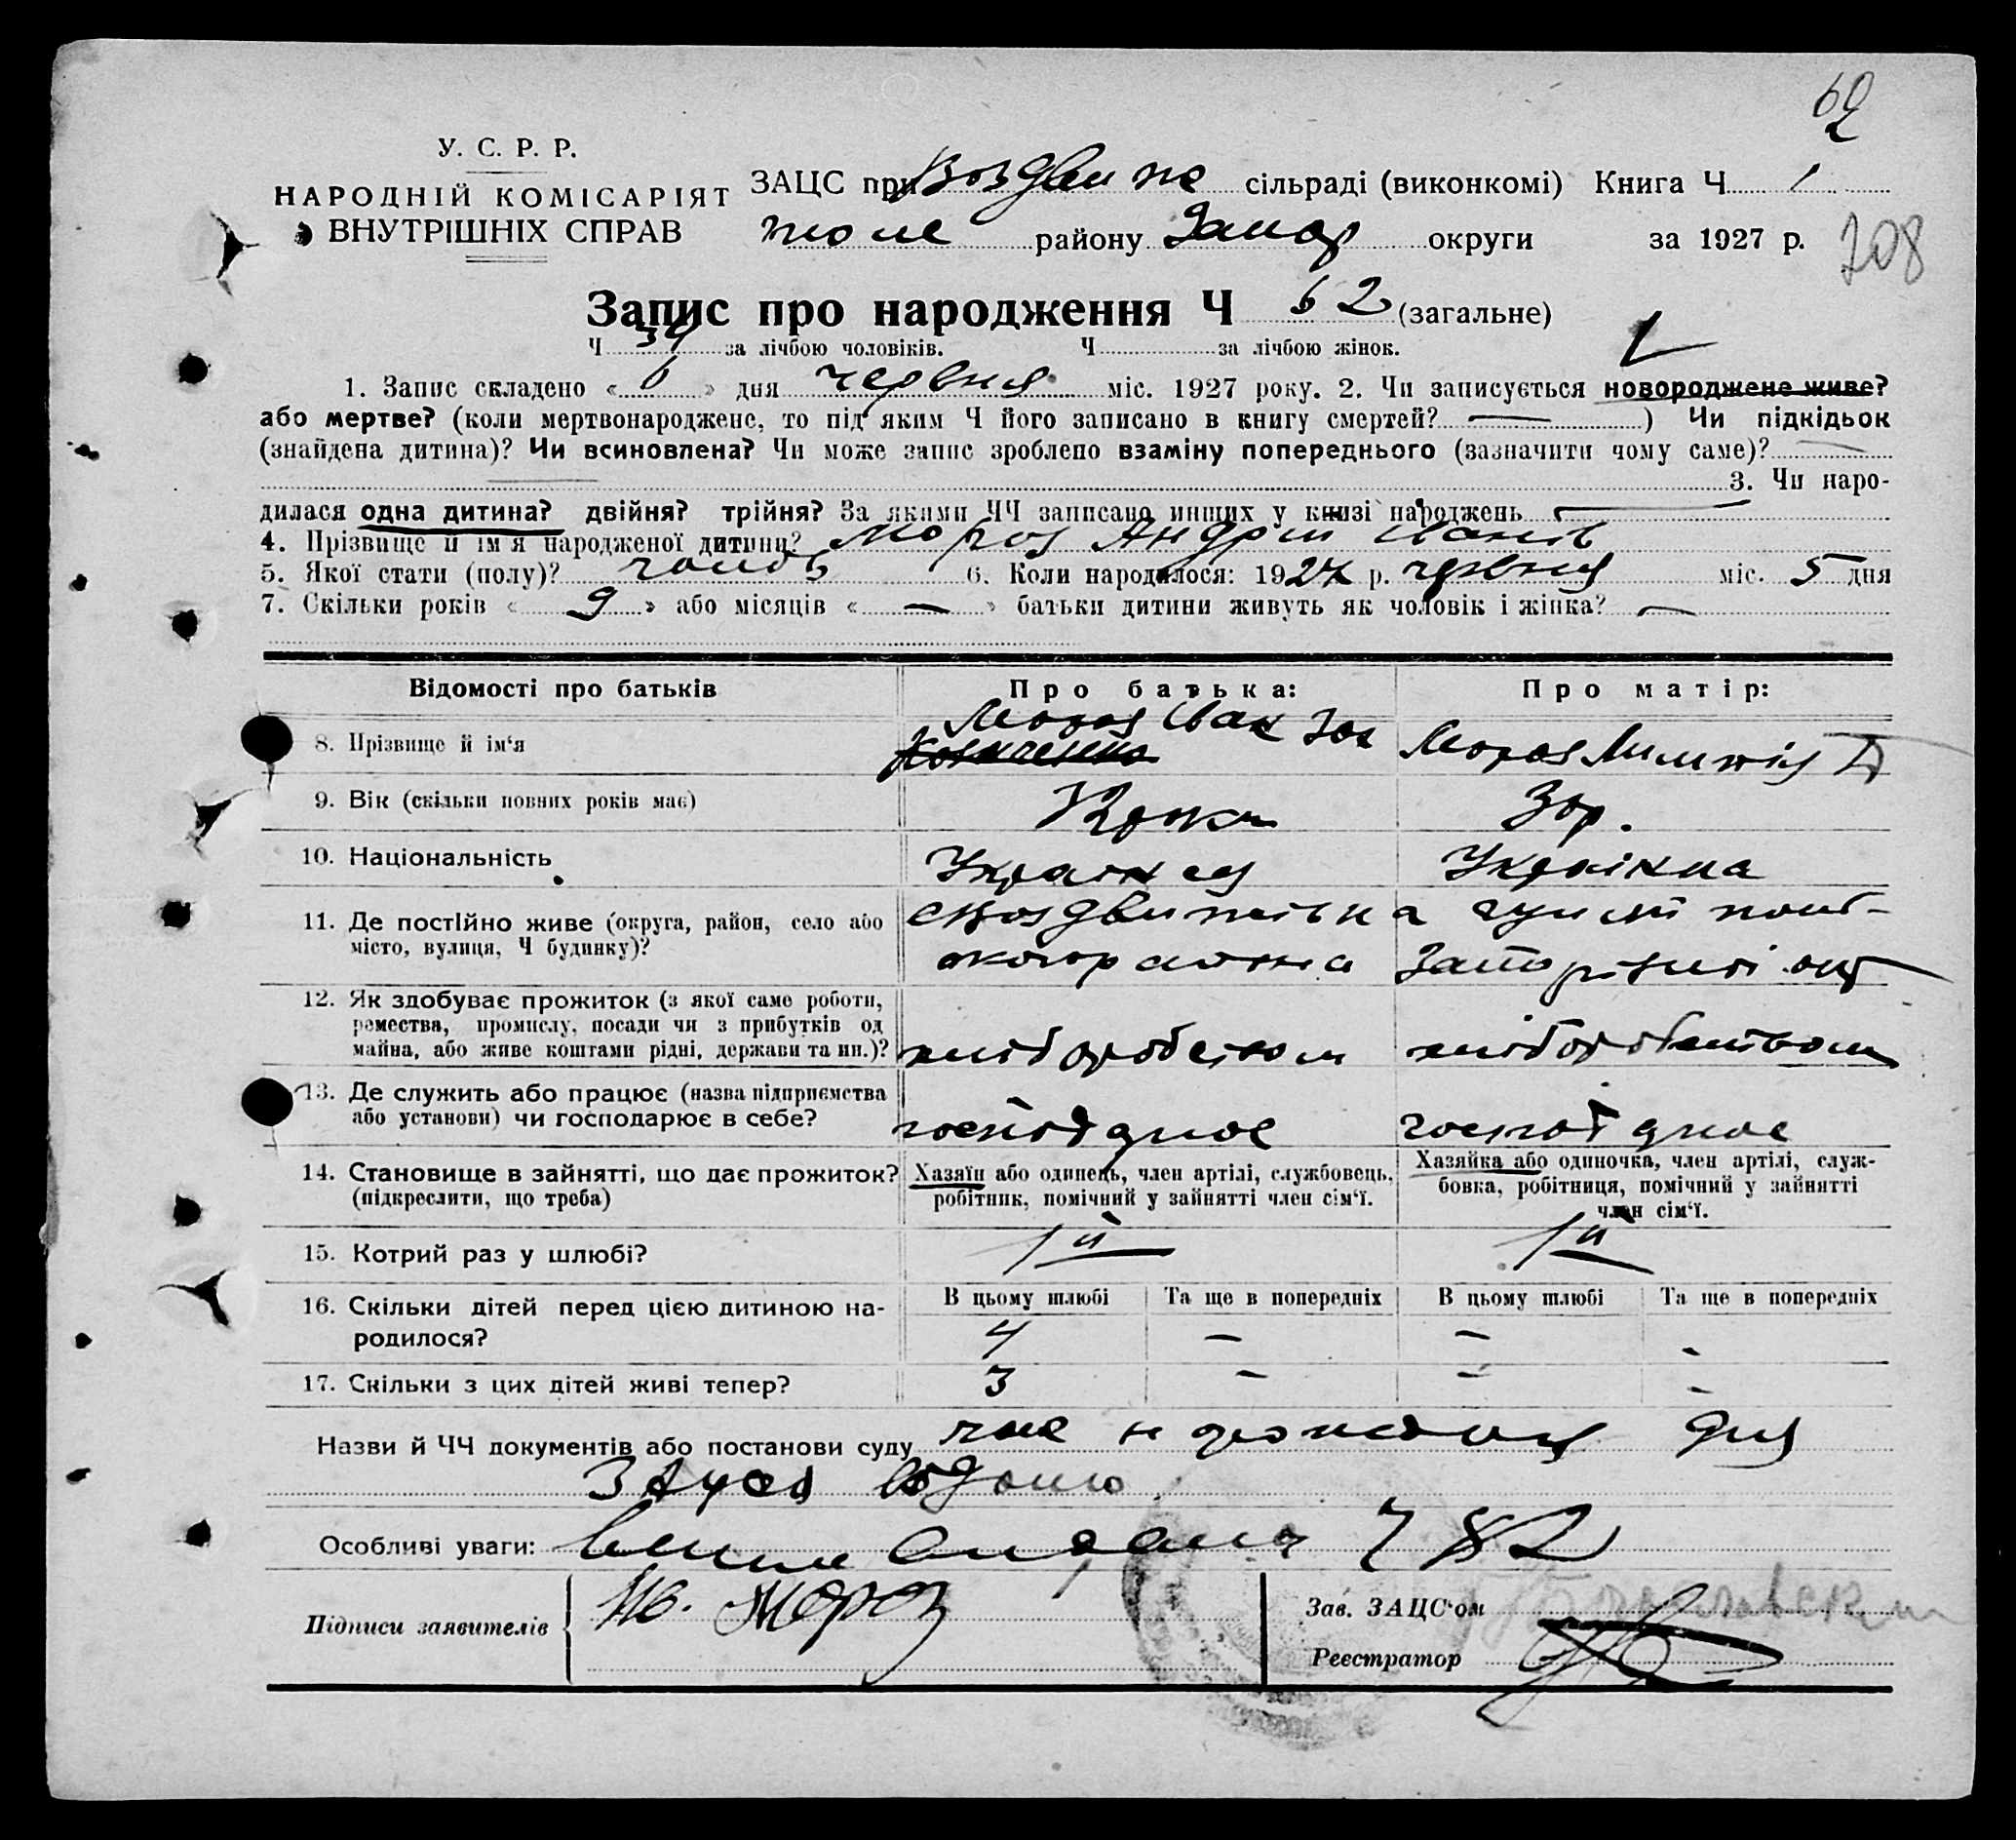 62
У. С. Р. Р.
НАРОДНІЙ КОМІСАРІЯТ
ВНУТРІШНІХ СПРАВ
ЗАЦС при Воздвиже сільраді (виконкомі) Книга Ч 1
району Запор округи за 1927 р.
208
Запис про народження Ч 62 (загальне)
Ч 34 за лічбою чоловіків. Ч за лічбою жінок.
1. Запис складено « 6 » дня червня міс. 1927 року. 2. Чи записується новороджене живе?
або мертве? (коли мертвонароджене, то під яким Ч його записано в книгу смертей? — ) Чи підкідьок
(знайдена дитина)? Чи всиновлена? Чи може запис зроблено взаміну попереднього (зазначити чому саме)? —
— 3. Чи наро-
дилася одна дитина? двійня? трійня? За якими ЧЧ записано инших у книзі народжень —
4. Прізвище й ім'я народженої дитини? Мороз Андрій Іванів
5. Якої стати (полу)? чолов 6. Коли народилося: 1927 р. червня міс. 5 дня
7. Скільки років « 9 » або місяців « — » батьки дитини живуть як чоловік і жінка? —
Відомості про батьків
Про батька:
Про матір:
8. Прізвище й ім'я
Мороз Іван
Мороз
9. Вік (скільки повних років має)
10. Національність
Українец
Українка
11. Де постійно живе (округа, район, село або
місто, вулиця, Ч будинку)?
12. Як здобуває прожиток (з якої саме роботи,
ремества, промислу, посади чи з прибутків од
майна, або живе коштами рідні, держави та ин.)?
хліборобством
хліборобством
13. Де служить або працює (назва підприємства
або установи) чи господарює в себе?
14. Становище в зайнятті, що дає прожиток?
(підкреслити, що треба)
Хазяїн або одинець, член артілі, службовець,
робітник, помічний у зайнятті член сім'ї.
Хазяйка або одиночка, член артілі, служ-
бовка, робітниця, помічний у зайнятті
член сім'ї.
15. Котрий раз у шлюбі?
1й
1й
16. Скільки дітей перед цією дитиною на-
родилося?
В цьому шлюбі
Та ще в попередніх
В цьому шлюбі
Та ще в попередніх
4 — — -
17. Скільки з цих дітей живі тепер?
3 - - -
Назви й ЧЧ документів або постанови суду
Особливі уваги: 782
Підписи заявителів
Ив. Мороз
Зав. ЗАЦС'ом
Реєстратор